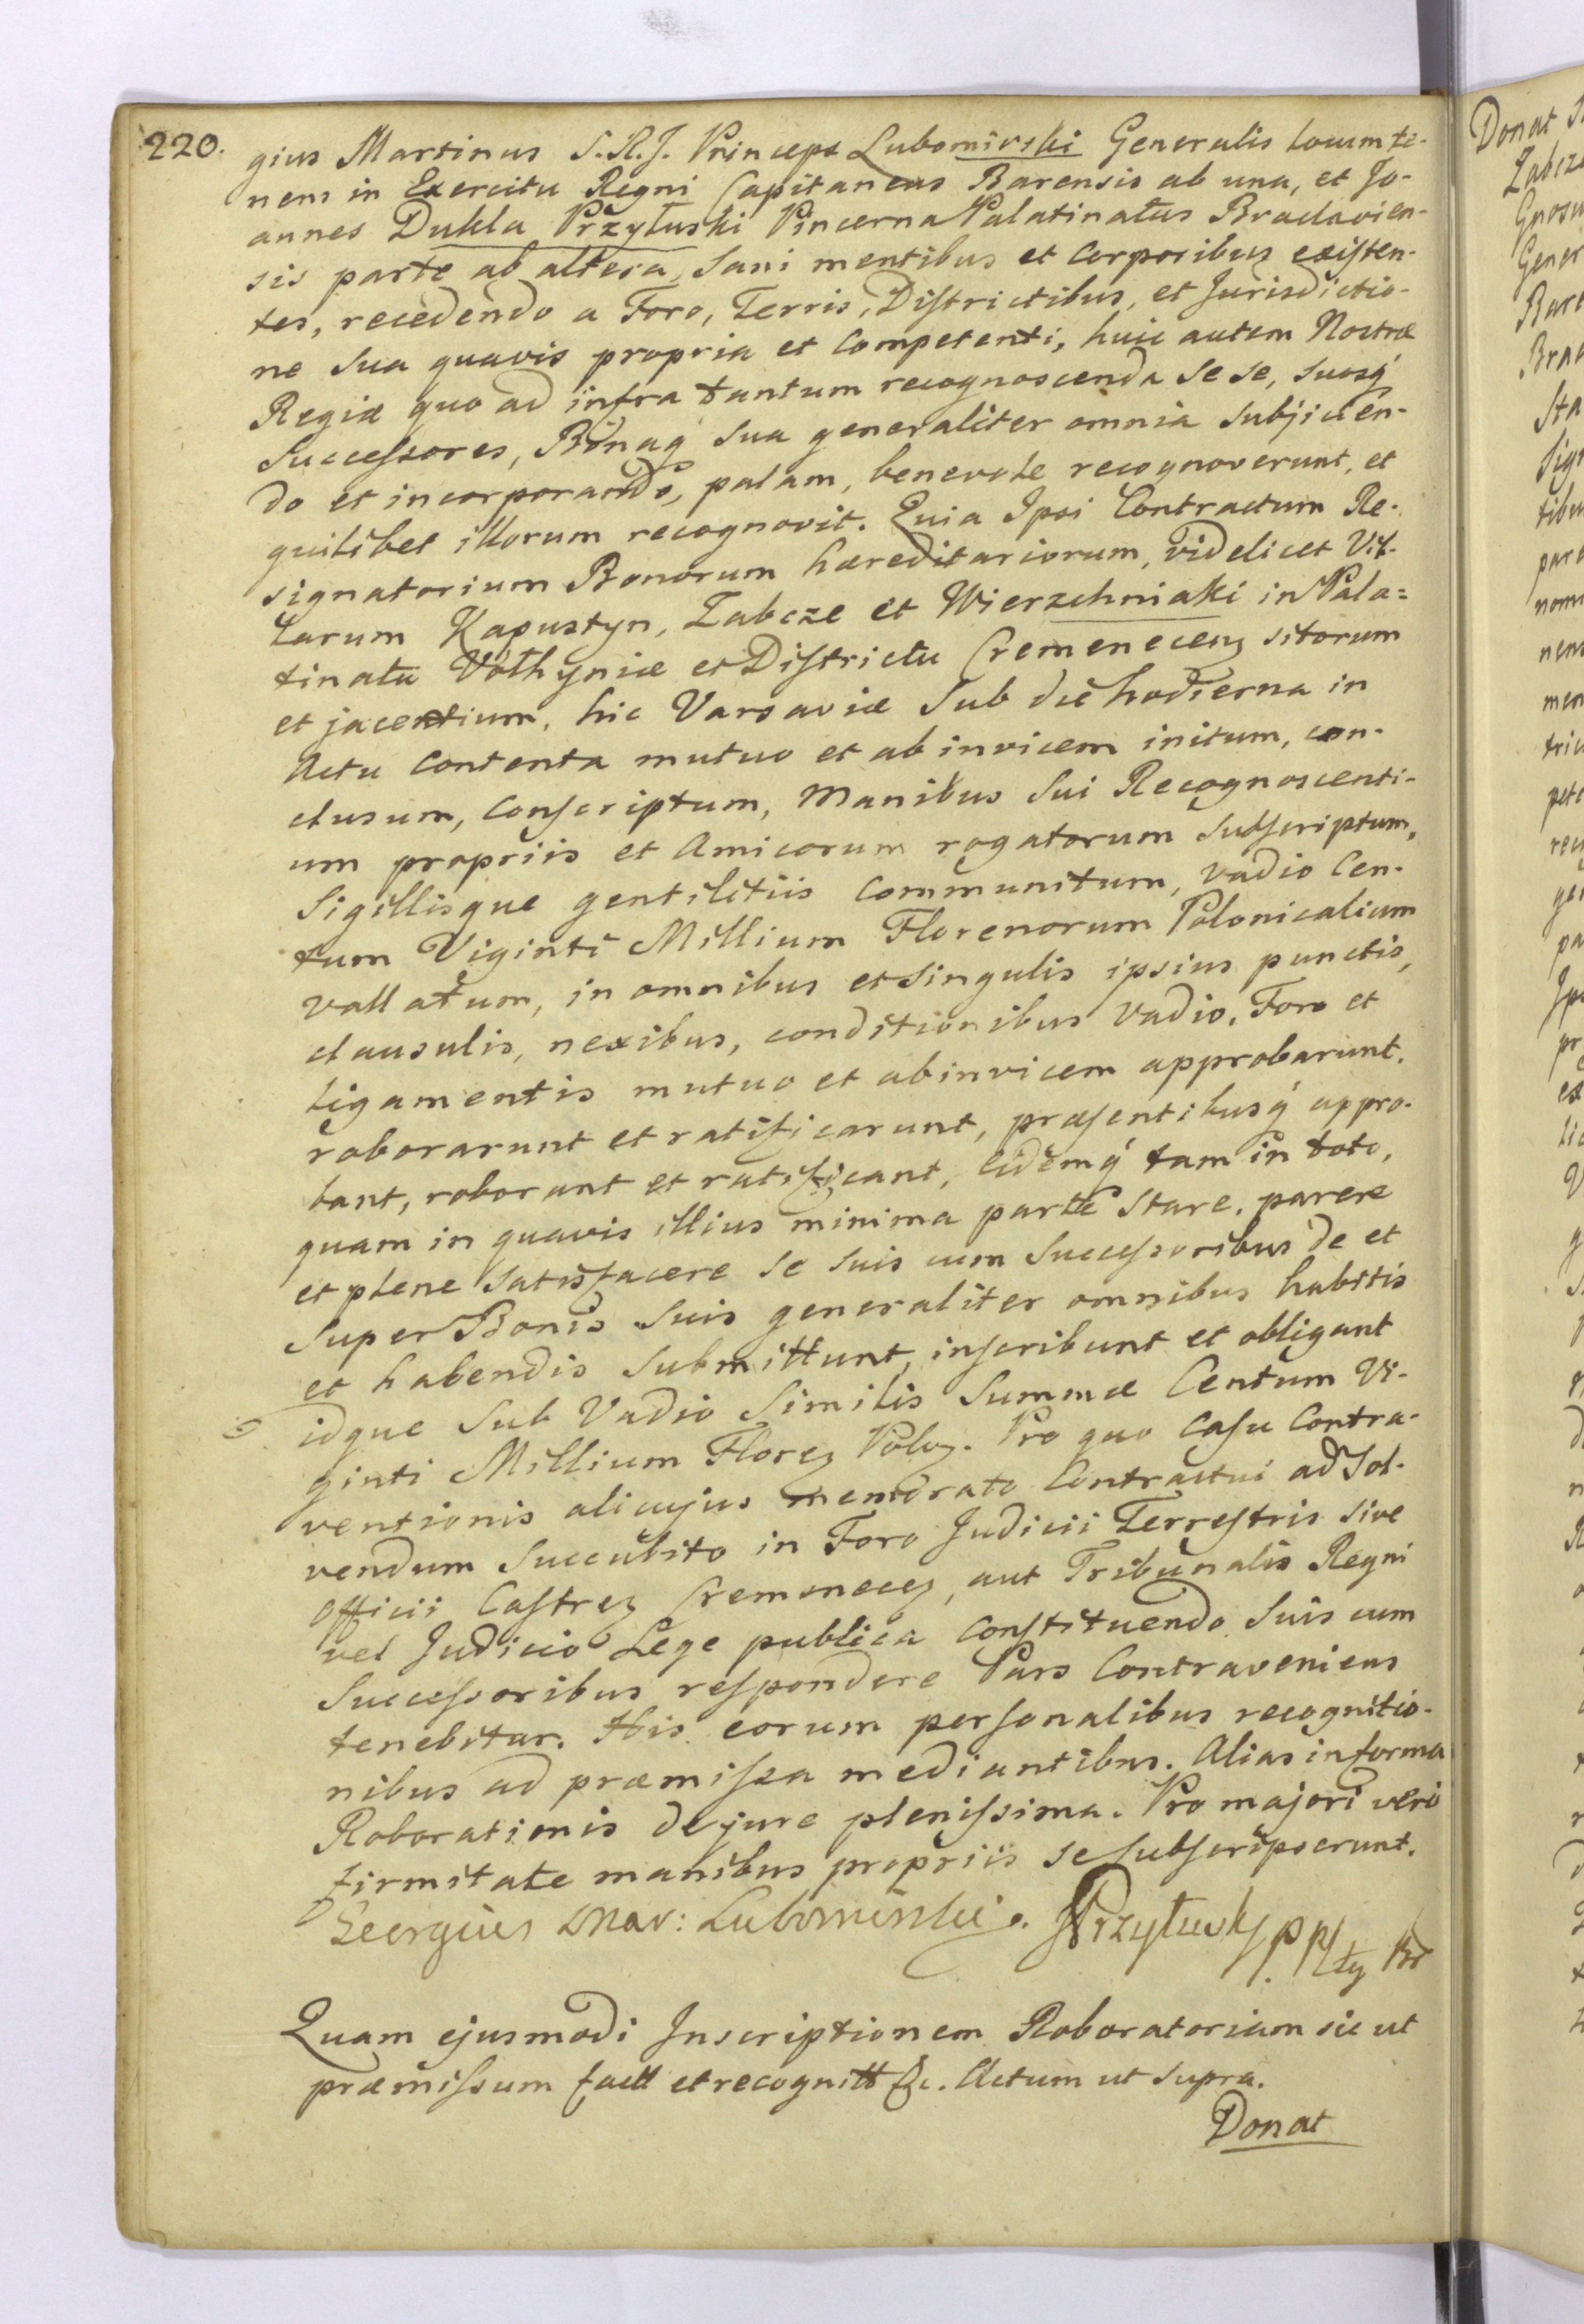 220.
gius Martinus S.R.J. Princeps Lubomirski Generalis Locumte-
nens in Exercitu Regni Capitaneus Barensis ab una, et Jo-
annes Dukla Przyłuski Pincerna Palatinatus Braclavien-
sis parte ab altera, Sani mentibus et Corporibus existen-
tes, recedendo a Foro, Terris, Districtibus, et Jurisdictio-
ne Sua quavis propria et Competenti, huic autem Nostræ
Regiæ quo ad infra tantum recognoscenda Se se, Suosq́
Successores, Bonaq́ Sua generaliter omnia Subjicien-
do et incorporando, palam, benevole recognoverunt, et
quilibet illorum recognovit. Quia Ipsi Contractum Re-
signatorium Bonorum hæreditariorum, videlicet Vil-
larum Kapustyn, Łabcze et Wierzchniaki in Pala=
tinatu Volhyniæ et Districtu Cremenecenʒ sitorum
et jacentium, hic Varsaviæ Sub die hodierna in
Actu Contenta mutuo et ab invicem initum, con-
clusum, Conscriptum, Manibus Sui Recognoscenti-
um propriis et Amicorum rogatorum Subscriptum,
Sigillisque gentilitiis Communitum, Vadio Cen-
tum Viginti Millium Florenorum Polonicalium
vallatum, in omnibus et Singulis ipsius punctis,
clausulis, nexibus, conditionibus Vadio, Foro et
ligamentis mutuo et abinvicem approbarunt,
roborarunt et ratificarunt, præsentibusq́ appro-
bant, roborant et ratificant, Eidemq́ tam in toto,
quam in quavis illius minima parte Stare, parere
et plene Satisfacere Se Suis cum Successoribus de et
Super Bonis Suis generaliter omnibus habitis
et habendis Submittunt, inscribunt et obligant
idque Sub Vadio Similis Summæ Centum Vi-
ginti Millium Florenʒ Polonʒ. Pro quo Casu Contra-
ventionis alicujus memorato Contractui ad Sol-
vendum Succubito in Foro Judicii Terrestris sive
Officii Castrenʒ Cremenecenʒ, aut Tribunalis Regni
vel Judicio Lege publica Constituendo Suis cum
Successoribus respondere Pars Contraveniens
tenebitur. His eorum personalibus recognitio-
nibus ad præmissa mediantibus. Alias in forma
Roborationis de jure plenissima. Pro majori vero
firmitate manibus propriis se subscripserunt.
Georgius Mar: Lubomirski. JPrzyłuski
Quam ejusmodi Inscriptionem Roboratoriam sic ut
præmissum factt et recognitt &c. Actum ut supra.
Donat
Donat